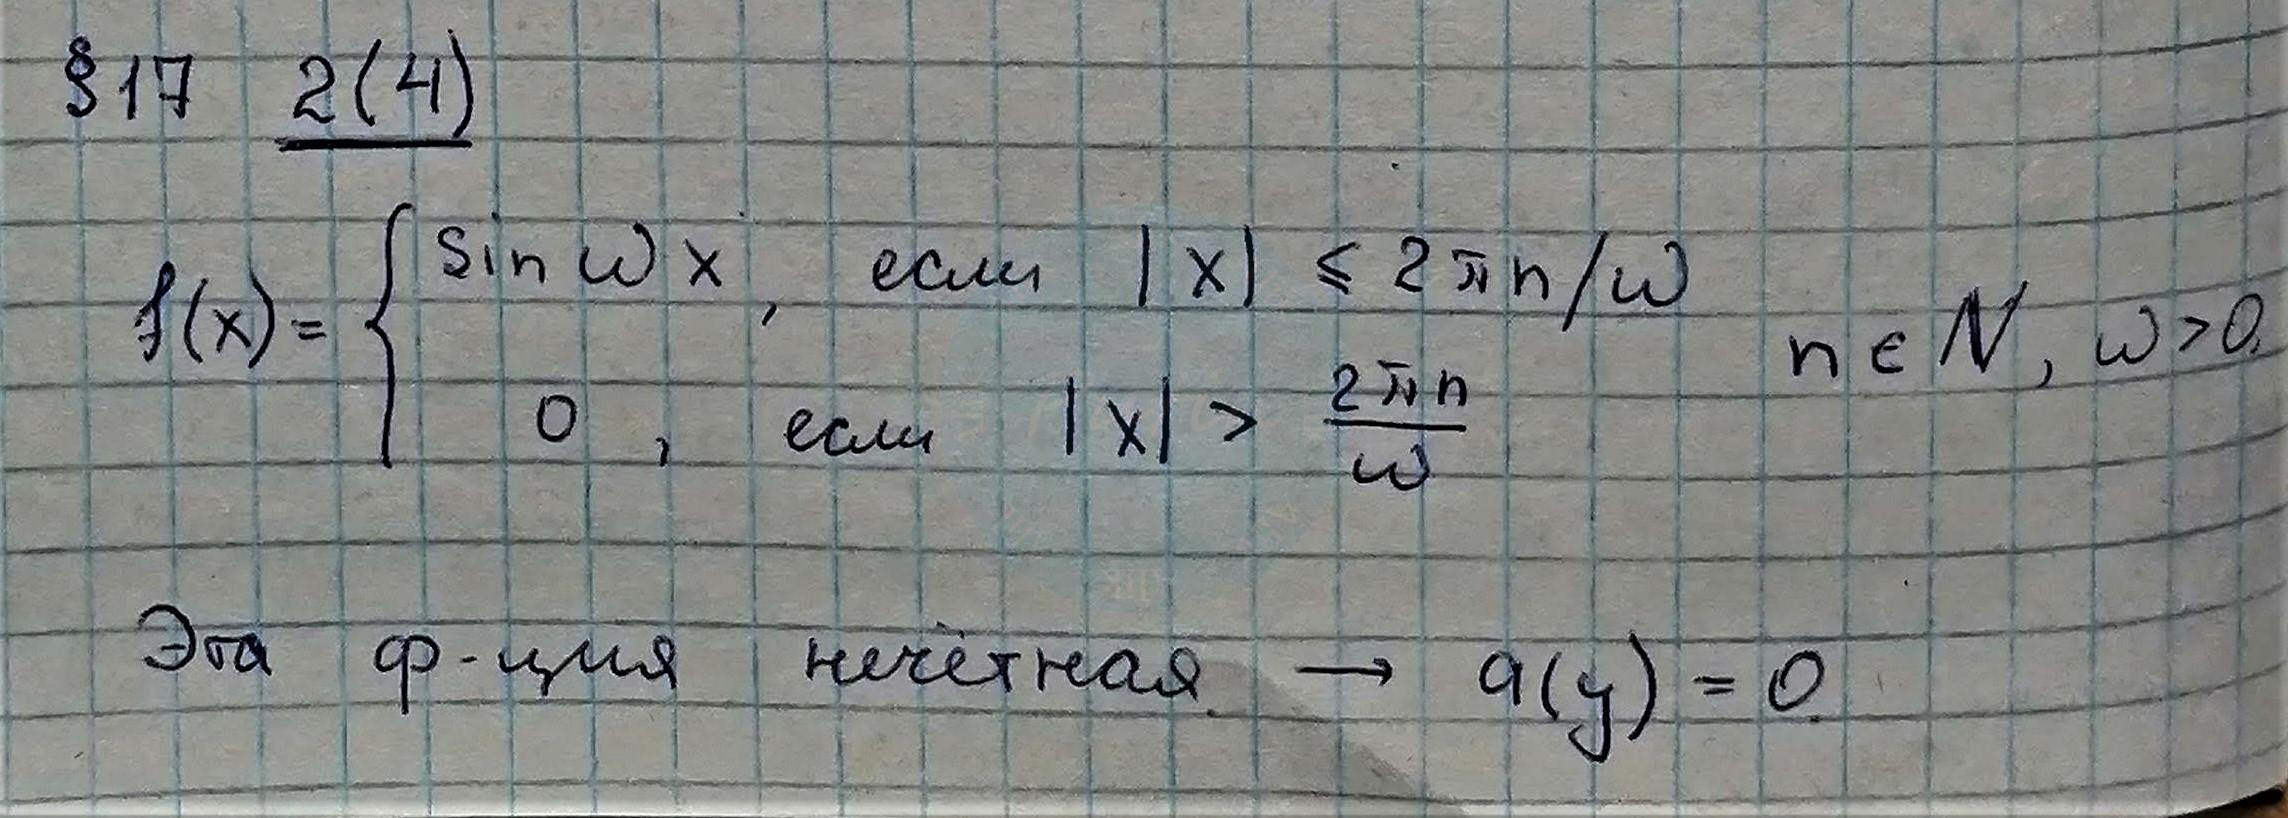 §17 2(4)
f(x) = { sin ωx, если |x| ⩽ 2πn/ω
0, если |x| > 2πn/ω
n ∈ N, ω > 0.
Эта ф-ция нечётная. → a(y) = 0.